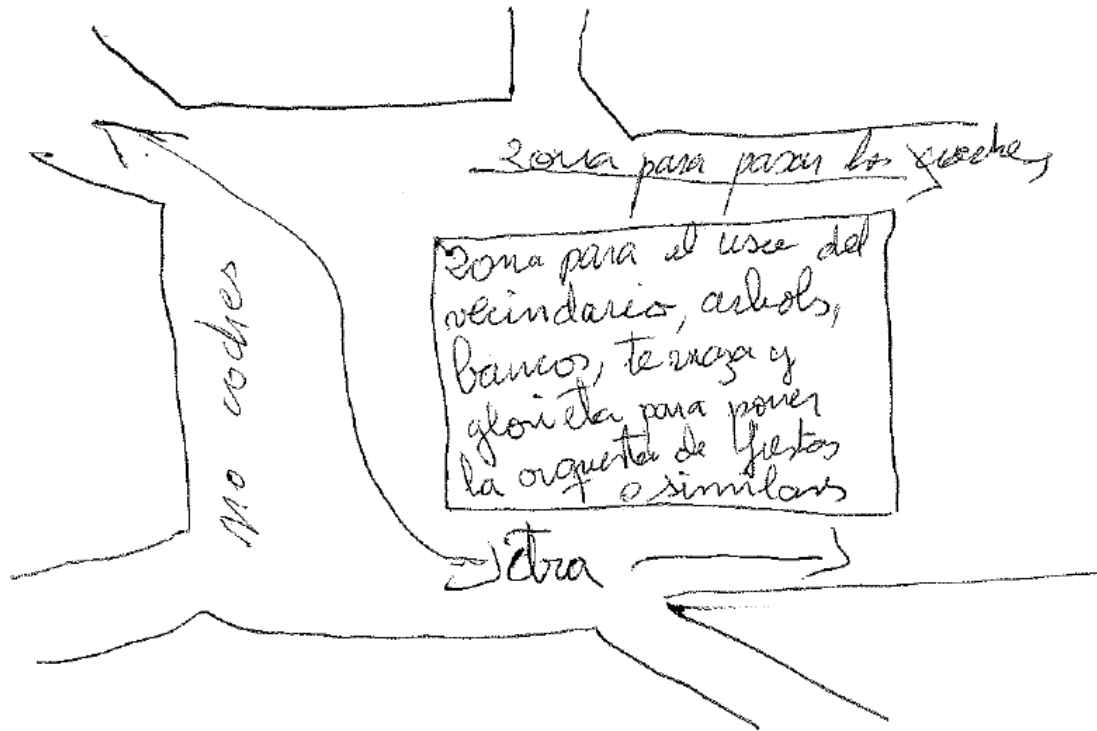 zona para pasar los coches
zona para el uso del
vecindario, arbols,
bancos, terraza y
glorieta para poner
la orquesta de fiestas
o similars
otra
no coches